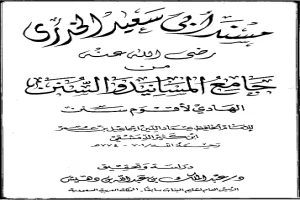 مسند أبي سعيد الخدري
رضي الله عنه
من
جامع المسانيد والسنن
الهادي لأقوم سنن
للإمام الحافظ عماد الدين إسماعيل بن عمر
ابن كثير الدمشقي
دراسة وتحقيق
د. عبد الملك بن عبد الله بن دهيش